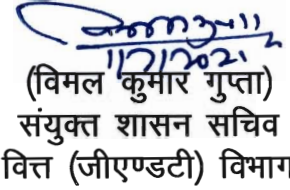 11/2/2021
(विमल कुमार गुप्ता)
संयुक्त शासन सचिव
वित्त (जीएण्डटी) विभाग